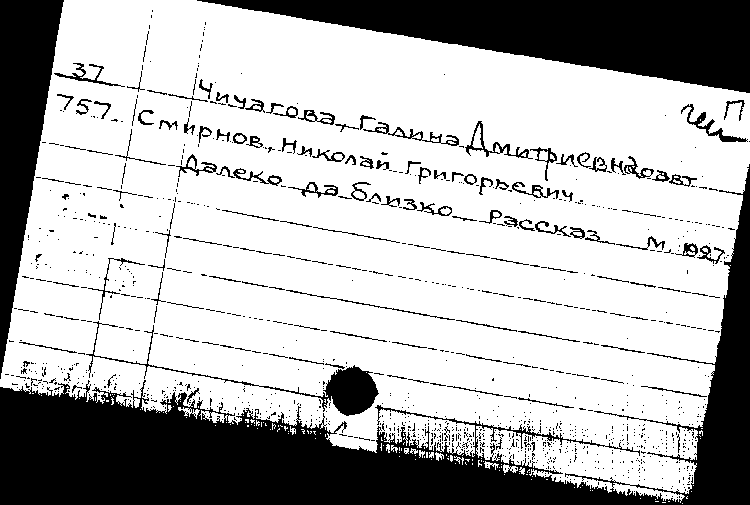 П
37
Чичагова, Галина Дмитриевна соавт
757. Смирнов, Николай Григорьевич.
Далеко да близко. Рассказ М. 1927.